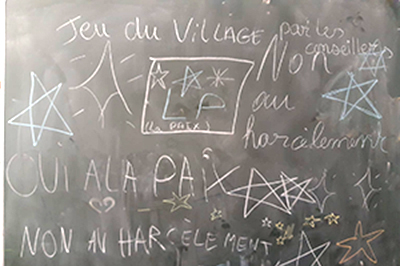 Jeu du VillAGE par les
conseillers
LP
(la PAIX)
Non
au
harcèlement
OUI A LA PAÎX
NON AU HARCÈLEMENT